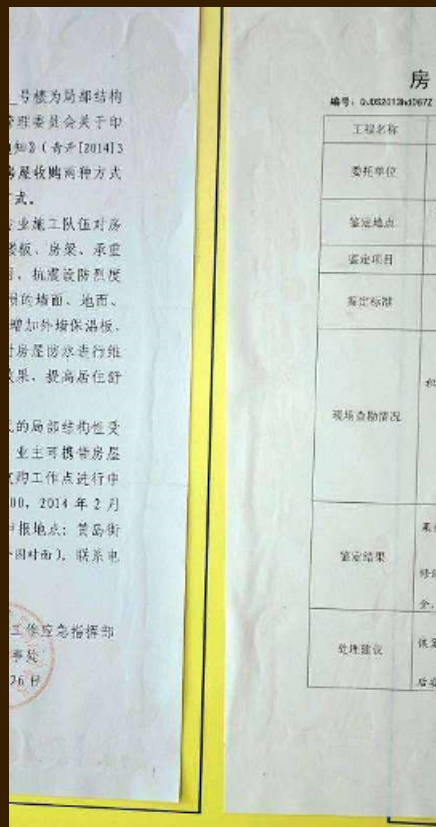 号楼为局部结构
管理委员会关于印
通知》（青开[2014]3
房屋收购两种方式
式。
专业施工队伍对房
楼板、房梁、承重
抗震设防烈度
损的墙面、地面、
增加外墙保温板、
对房屋防水进行维
效果、提高居住舒
的局部结构性受
业主可携带房屋
收购工作点进行申
00，2014年2月
申报地点：黄岛街
对面），联系电
工作应急指挥部
事处
26日
房
编号：
工程名称
委托单位
鉴定地点
鉴定项目
鉴定标准
现场查勘情况
鉴定结果
修
全，
处理建议
恢复
后